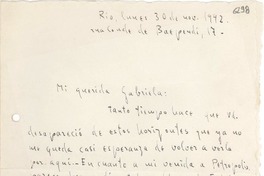 6298
Río, lunes 30 de nov. 1942.
rua Conde de Baependi, 17.-
Mi querida Gabriela:
Tanto tiempo hace que Ud.
desapareció de estos horizontes que ya no
me queda casi esperanza de volver a verla
por aquí - En cuanto a mi venida a Petrópolis